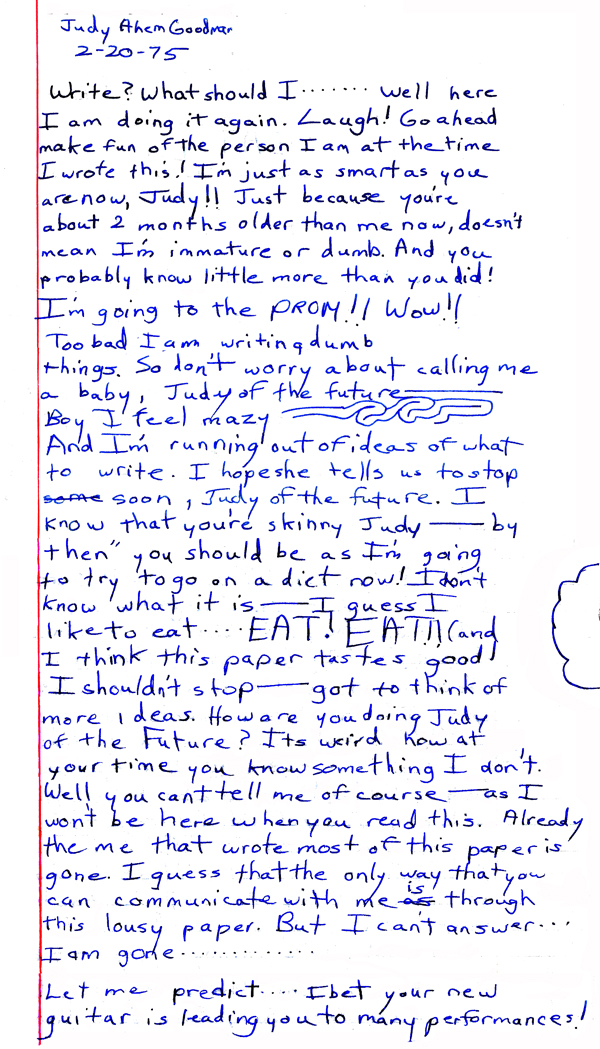 Judy Ahem Goodman
2-20-75
Write? What should I ........ well here
I am doing it again. Laugh! Go ahead
make fun of the person I am at the time
I wrote this! I'm just as smart as you
are now, Judy!! Just because you're
about 2 months older than me now, doesn't
mean I'm immature or dumb. And you
probably know little more than you did!
I'm going to the PROM!! Wow!!
Too bad I am writing dumb
things. So don't worry about calling me
a baby, Judy of the future
Boy I feel mazy
And I'm running out of ideas of what
to write. I hope she tells us to stop
some soon, Judy of the future. I
know that you're skinny Judy — by
then" you should be as I'm going
to try to go on a diet now! I don't
know what it is — I guess I
like to eat .... EAT! EAT!! (and
I think this paper tastes good!
I shouldn't stop — got to think of
more ideas. How are you doing Judy
of the Future? Its weird how at
your time you know something I don't.
Well you can't tell me of course — as I
won't be here when you read this. Already
the me that wrote most of this paper is
gone. I guess that the only way that you
can communicate with me as is through
this lousy paper. But I can't answer...
I am gone .............
Let me predict .... I bet your new
guitar is leading you to many performances!